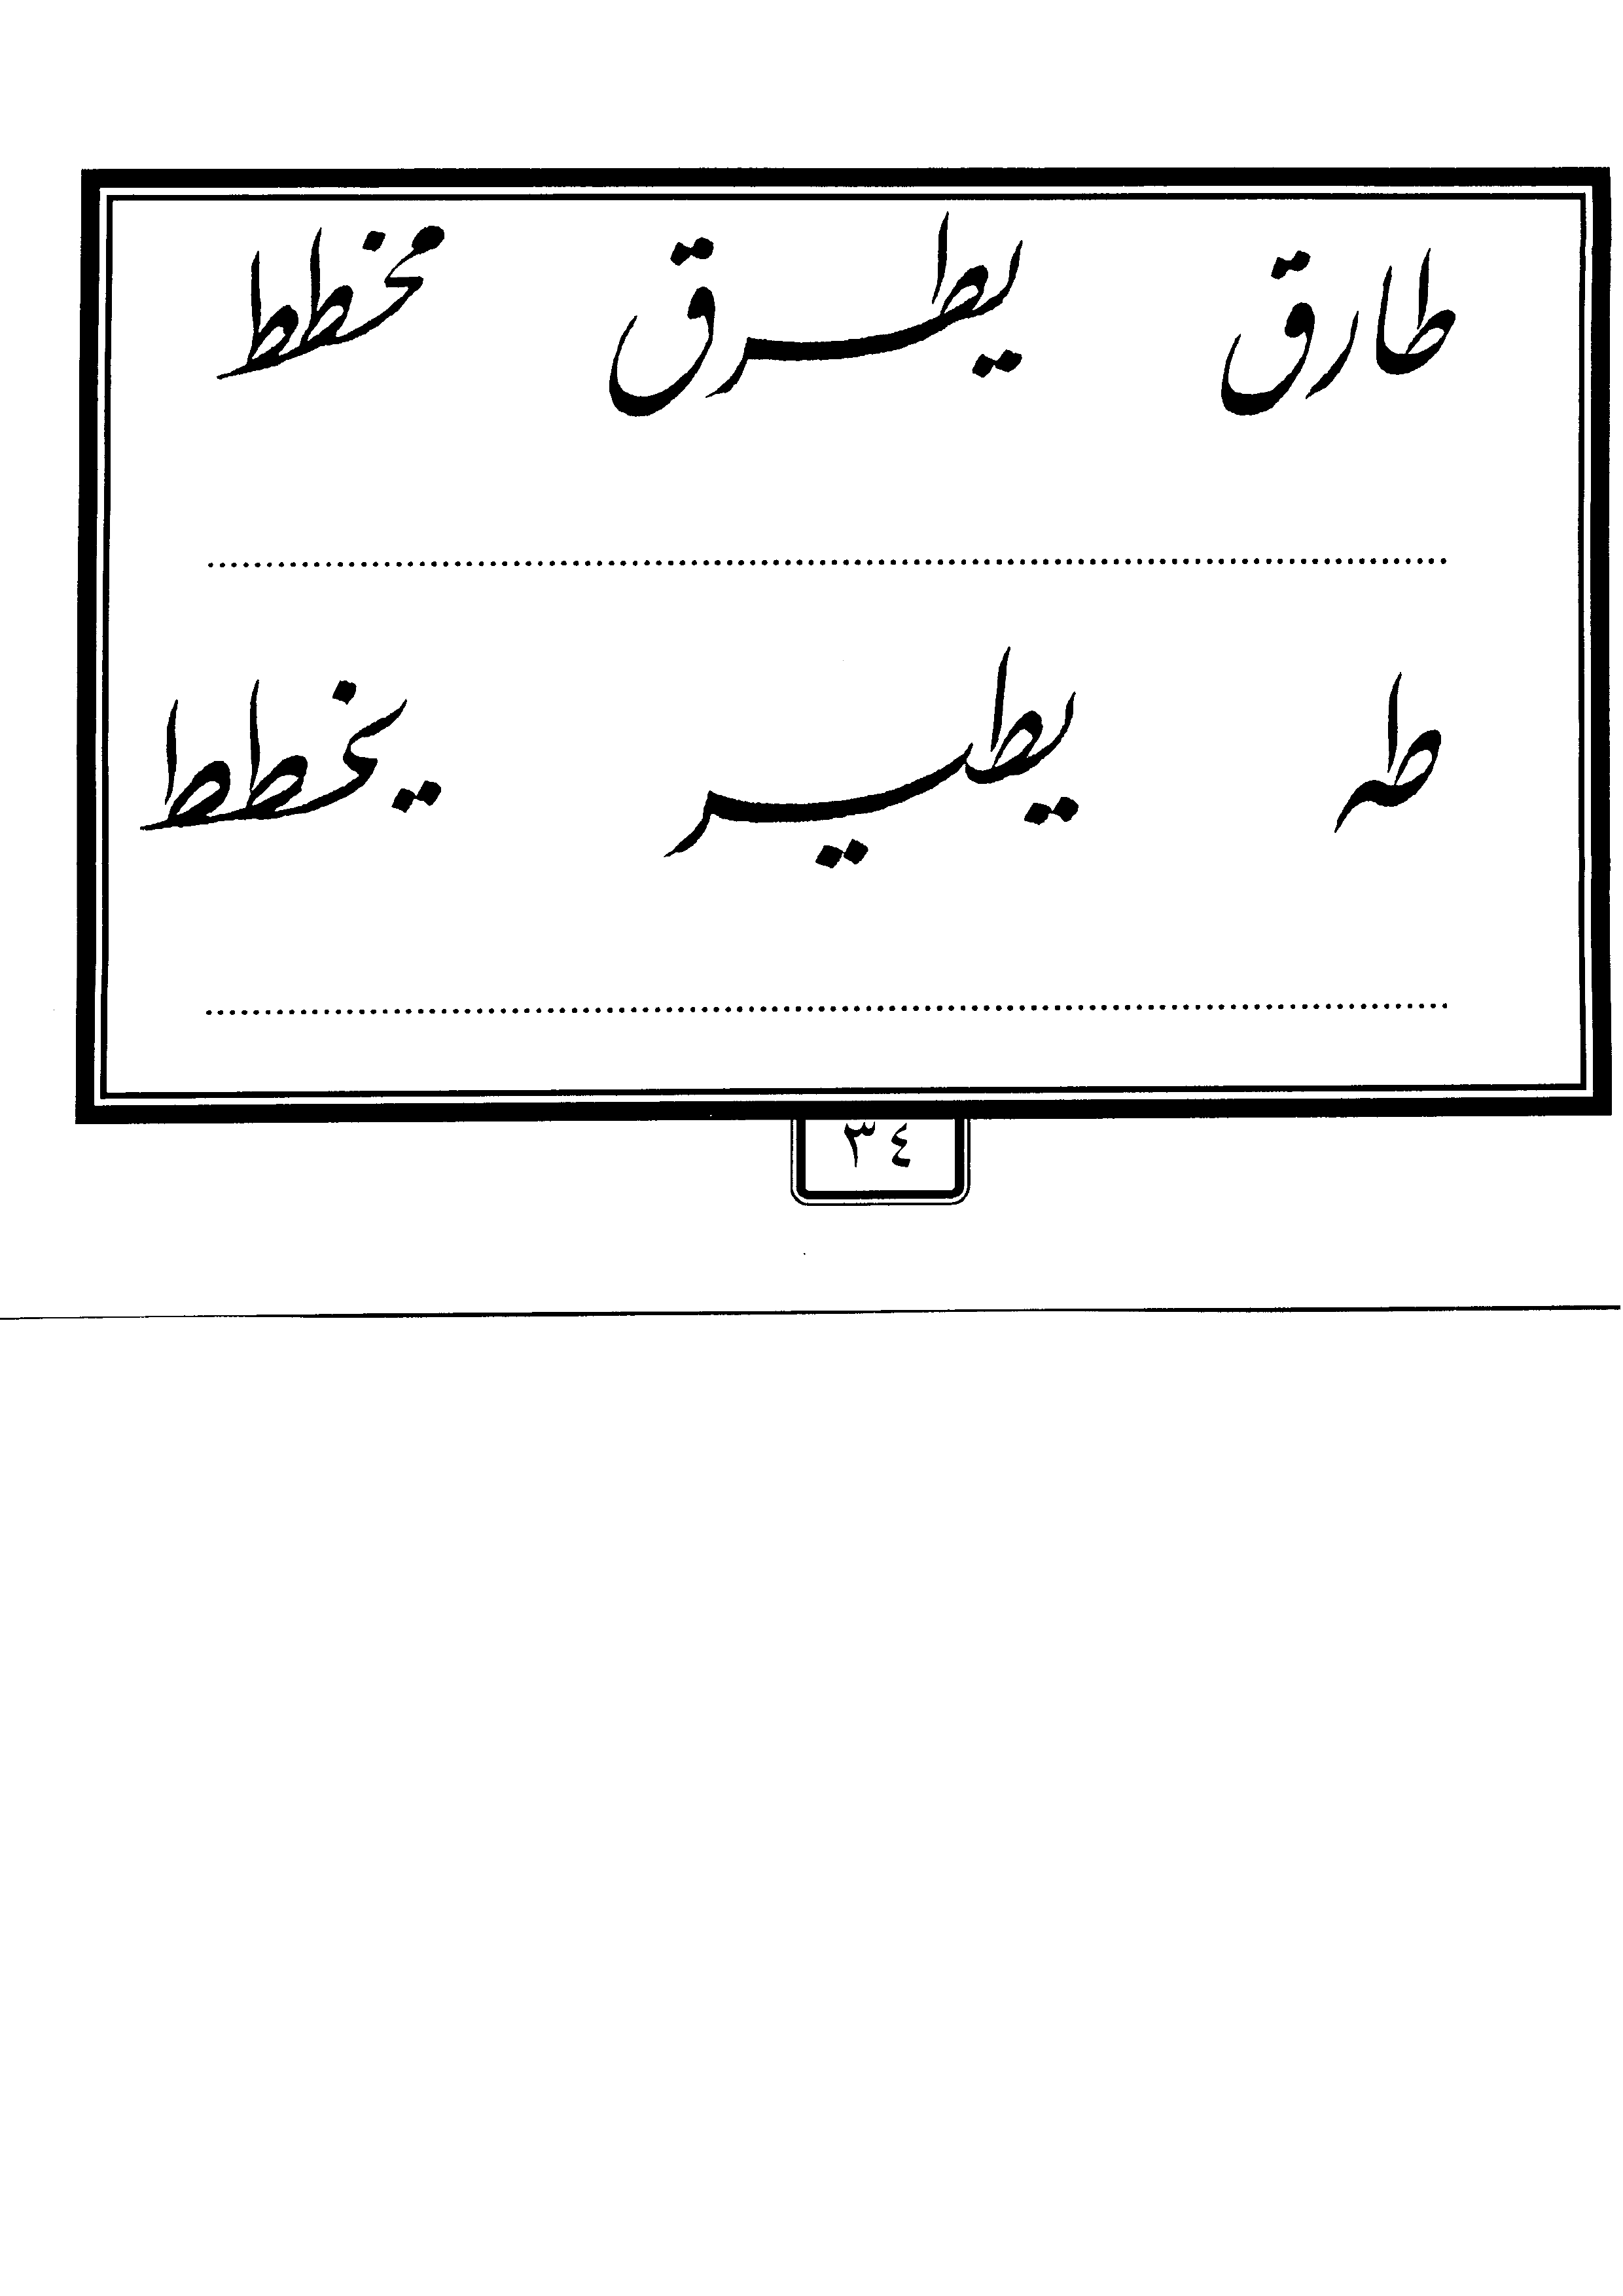 طارق يطرق مخطط
طه يطير يخطط
٣٤